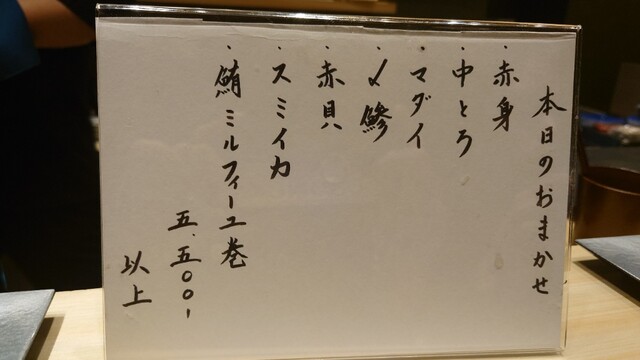 本日のおまかせ
・赤身
・中とろ
・マダイ
・〆鯵
・赤貝
・スミイカ
・鮪ミルフィーユ巻
五.五〇〇-
以上